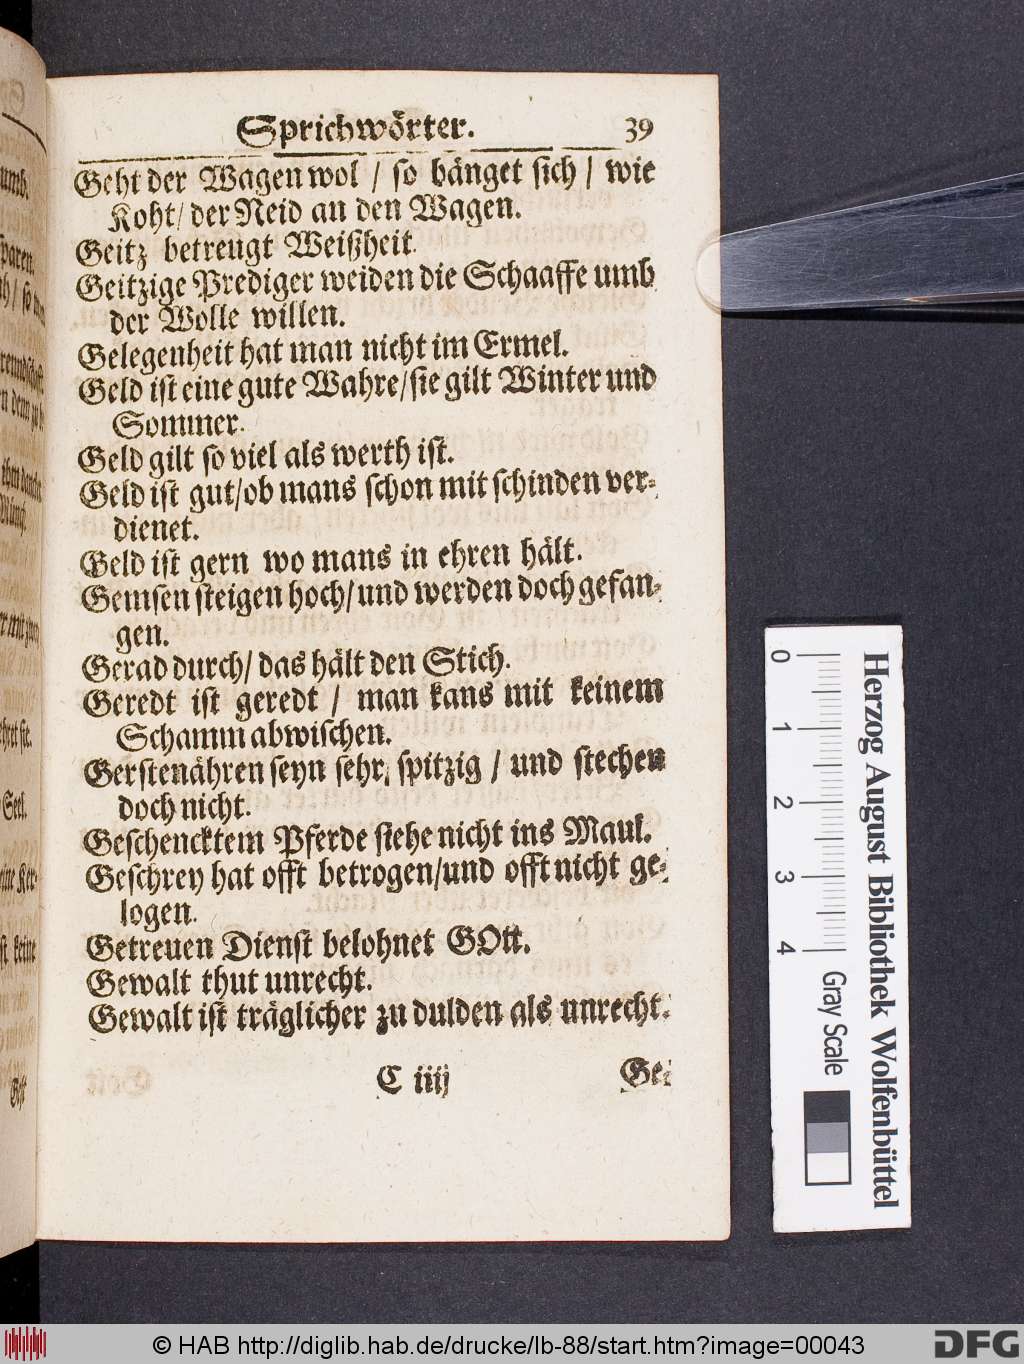 Sprichwörter. 39
Geht der Wagen wol / so hänget sich / wie
Koht / der Neid an den Wagen.
Geitz betreugt Weißheit.
Geitzige Prediger weiden die Schaaffe umb
der Wolle willen.
Gelegenheit hat man nicht im Ermel.
Geld ist eine gute Wahre / sie gilt Winter und
Sommer.
Geld gilt so viel als werth ist.
Geld ist gut / ob mans schon mit schinden ver-
dienet.
Geld ist gern wo mans in ehren hält.
Gemsen steigen hoch / und werden doch gefan-
gen.
Gerad durch / das hält den Stich.
Geredt ist geredt / man kans mit keinem
Schamm abwischen.
Gerstenähren seyn sehr spitzig / und stechen
doch nicht.
Geschencktem Pferde siehe nicht ins Maul.
Geschrey hat offt betrogen / und offt nicht ge-
logen.
Getreuen Dienst belohnet GOtt.
Gewalt thut unrecht.
Gewalt ist träglicher zu dulden als unrecht.
C iiij Ge-
umb.
sparen.
Seel.
0 1 2 3 4
Gray Scale
Herzog August Bibliothek Wolfenbüttel
© HAB http://diglib.hab.de/drucke/lb-88/start.htm?image=00043
DFG